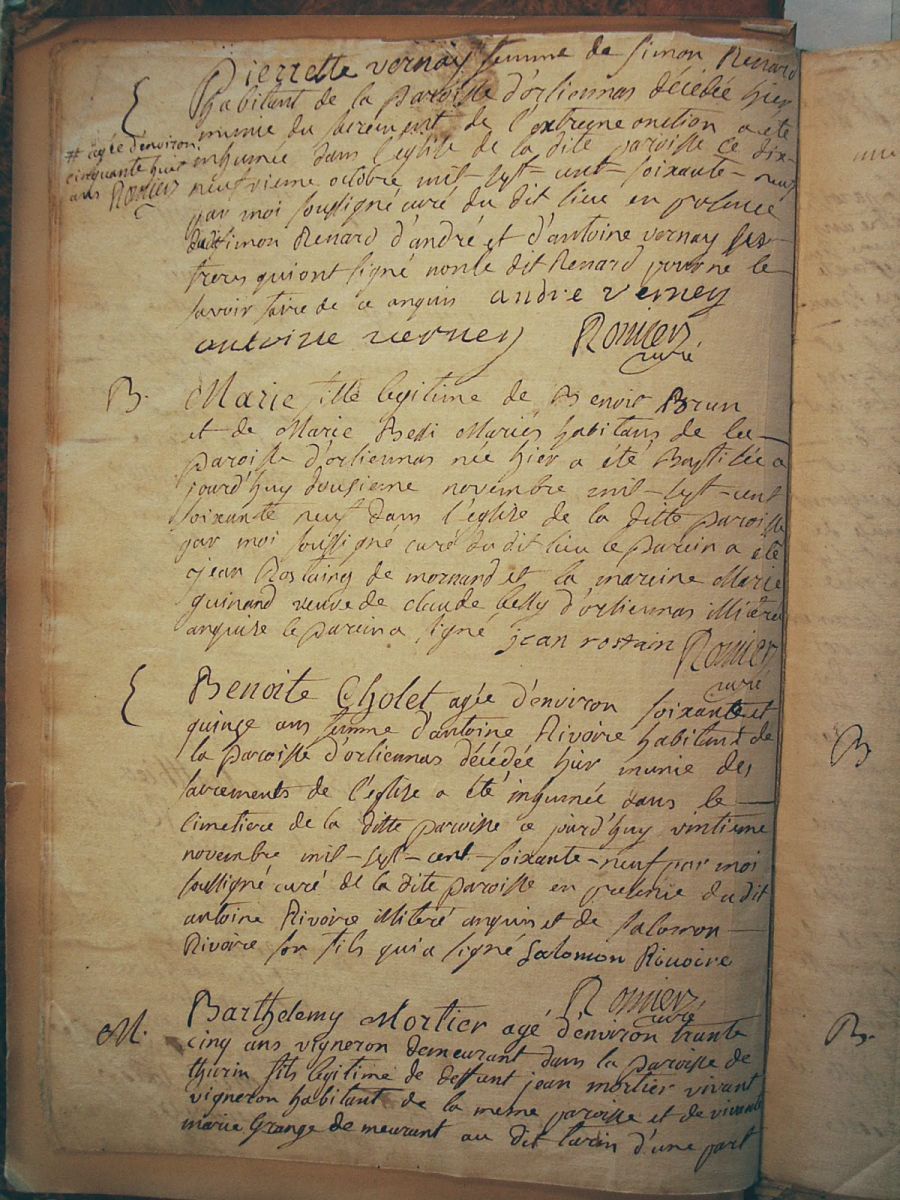 Pierrette vernay femme de simon Renard
habitant de la paroisse d'orliennas décédée hier
munie du sacrement de l'extreme onction a été
# agée d'environ
cinquante huit
ans Romier
inhumée dans l'eglise de la dite paroisse ce dix-
neufvieme octobre mil-sept-cent-soixante-neuf
par moi soussigné curé du dit lieu en presence
dudit simon Renard d'andré et d'antoine vernay ses
freres qui ont signé non le dit Renard pour ne le
savoir faire de ce enquis andré verney
antoine verney Romier
curé
B. Marie fille legitime de Benoit Brun
et de Marie Bessi Mariés habitans de la
paroisse d'orliennas née hier a été Baptisée a
jourd'huy dousieme novembre mil-sept-cent
soixante neuf dans l'eglise de la ditte paroisse
par moi soussigné curé du dit lieu le parein a été
jean Rostaing de mornand et la mareine Marie
guinand veuve de claude belly d'orliennas illiterée
enquise le parein a signé jean rostain Romier
curé
Benoite Cholet agée d'environ soixante et
quinze ans femme d'antoine Rivoire habitant de
la paroisse d'orliennas décédée hier munie des
sacrements de l'eglise a été inhumée dans le
cimetiere de la ditte paroisse ce jourd'huy vintieme
novembre mil-sept-cent-soixante-neuf par moi
soussigné curé de la dite paroisse en presence du dit
antoine Rivoire illiteré enquis et de salomon
Rivoire son fils qui a signé Salomon Rivoire
Romier
curé
M. Barthelemy Mortier agé d'environ trante
cinq ans vigneron demeurant dans la paroisse de
thurin fils legitime de deffunt jean mortier vivant
vigneron habitant de la meme paroisse et de vivante
marie Grange demeurant au dit turin d'une part
B
B.